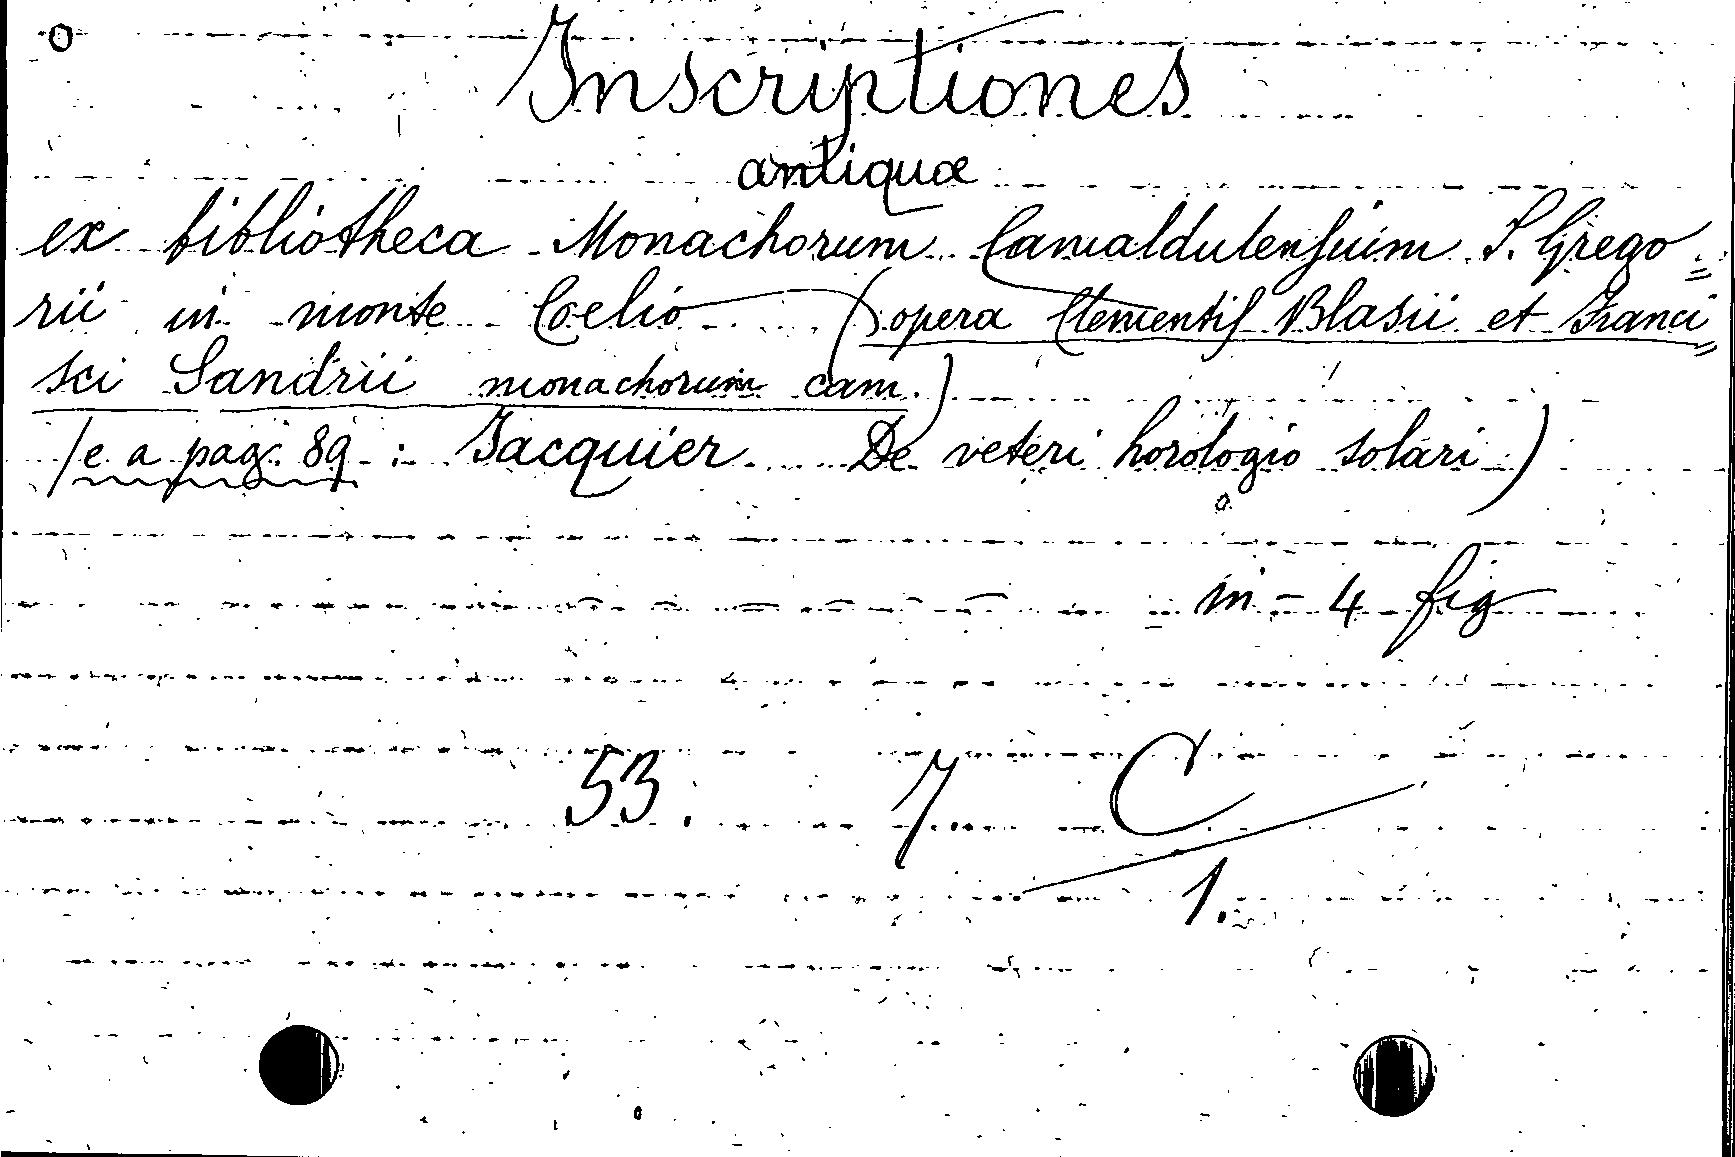 Inscriptiones
antiquæ
ex bibliotheca Monachorum Camaldulensium S. Grego=
rii in monte Coelio (opera Clementis Blasii et Franci=
sci Sandrii monachorum cam.)
(e a pag. 89 : Jacquier De veteri horologio solari)
in - 4 fig
53. 7 C
1.